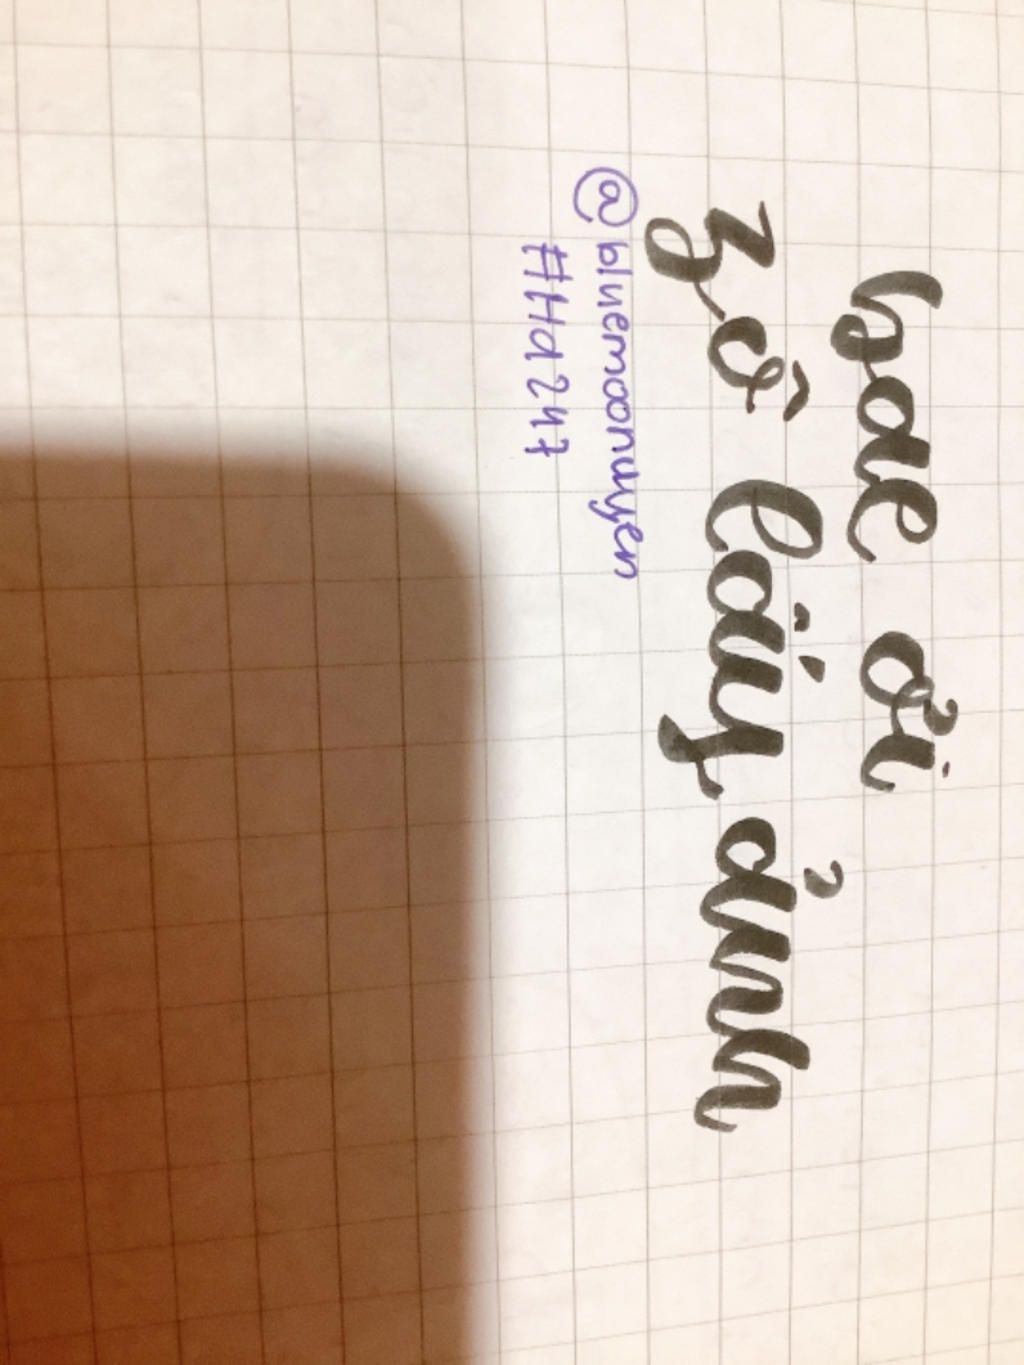 bae ơi
zô lấy ảnh
@bluemoonuyen
#Hd247